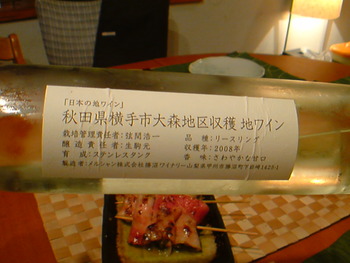 「日本の地ワイン」
秋田県横手市大森地区収穫 地ワイン
栽培管理責任者:弦間浩一 品種:リースリング
醸造責任者:生駒元 収穫年:2008年
育成:ステンレスタンク 香味:さわやかな甘口
製造者:メルシャン株式会社勝沼ワイナリー山梨県甲州市勝沼町下岩崎1425-1